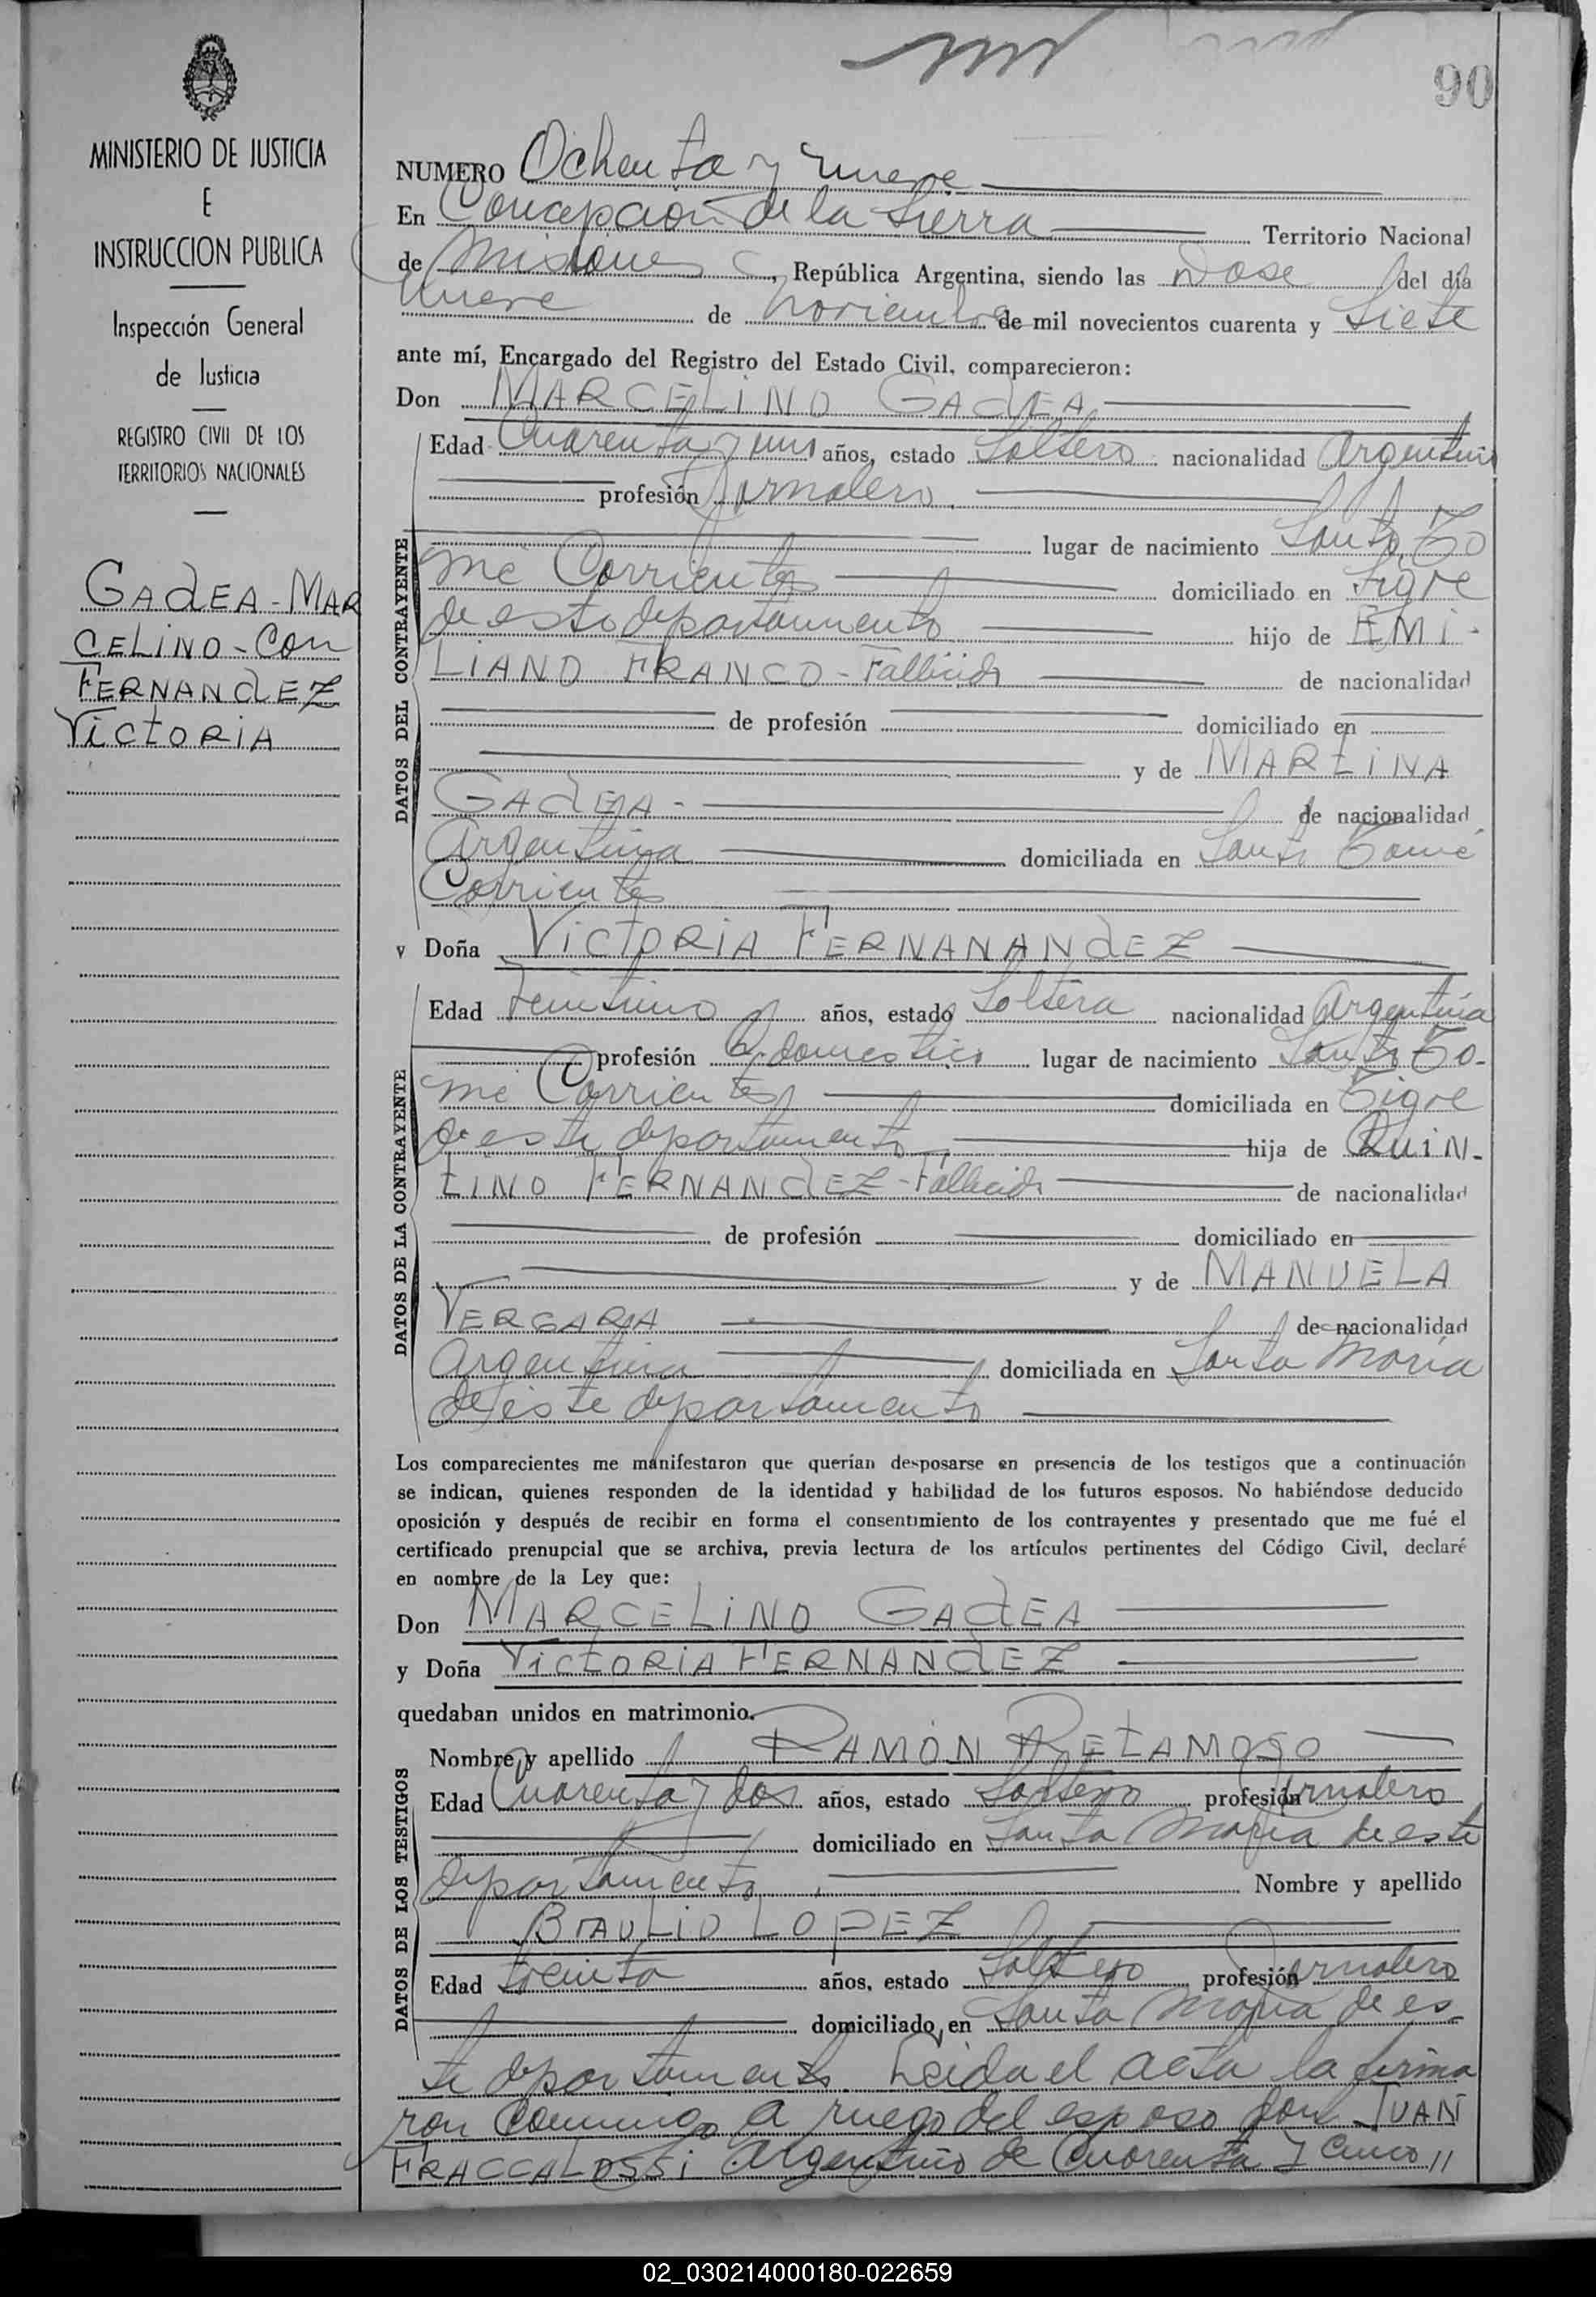 90
MINISTERIO DE JUSTICIA
E
INSTRUCCION PUBLICA
Inspección General
de Justicia
REGISTRO CIVIL DE LOS
TERRITORIOS NACIONALES
GAdEA - MAR
CELINO - Con
FERNANdEZ
VictORiA
NUMERO Ochenta y nueve
En Concepción de la Sierra Territorio Nacional
de Misiones, República Argentina, siendo las Dose del día
nueve de noviembre de mil novecientos cuarenta y Siete
ante mí, Encargado del Registro del Estado Civil, comparecieron:
Don MARCELINO GAdEA
Edad Cuarenta y uno años, estado Soltero nacionalidad Argentino
profesión Jornalero
lugar de nacimiento Santo To
mé Corrientes domiciliado en Tigre
de este departamento hijo de EMI-
LIANO FRANCO - Fallecido de nacionalidad
de profesión domiciliado en
y de MARTINA
GAdEA - de nacionalidad
Argentina domiciliada en Santo Tomé
Corrientes
y Doña VICTORIA FERNANANdEZ
Edad Veintiuno años, estado Soltera nacionalidad Argentina
profesión Q. domestico lugar de nacimiento Santo To-
mé Corrientes domiciliada en Tigre
de este departamento hija de QUIN-
TINO FERNANdEZ - Fallecido de nacionalidad
de profesión domiciliado en
y de MANUELA
VERGARA de nacionalidad
Argentina domiciliada en Santa Maria
de este departamento
Los comparecientes me manifestaron que querían desposarse en presencia de los testigos que a continuación
se indican, quienes responden de la identidad y habilidad de los futuros esposos. No habiéndose deducido
oposición y después de recibir en forma el consentimiento de los contrayentes y presentado que me fué el
certificado prenupcial que se archiva, previa lectura de los artículos pertinentes del Código Civil, declaré
en nombre de la Ley que:
Don MARCELINO GAdEA
y Doña VictORIA FERNANdEZ
quedaban unidos en matrimonio.
Nombre y apellido RAMON RETAMOSO
Edad Cuarenta y dos años, estado Soltero profesión Jornalero
domiciliado en Santa Maria de este
departamento Nombre y apellido
BRAULIO LOPEZ
Edad treinta años, estado Soltero profesión Jornalero
domiciliado en Santa Maria de es-
te departamento. Leida el acta la firma
ron conmigo a ruego del esposo don JUAN
FRACCALOSSi Argentino de Cuarenta y Cinco //
DATOS DEL CONTRAYENTE
DATOS DE LA CONTRAYENTE
DATOS DE LOS TESTIGOS
02_030214000180-022659